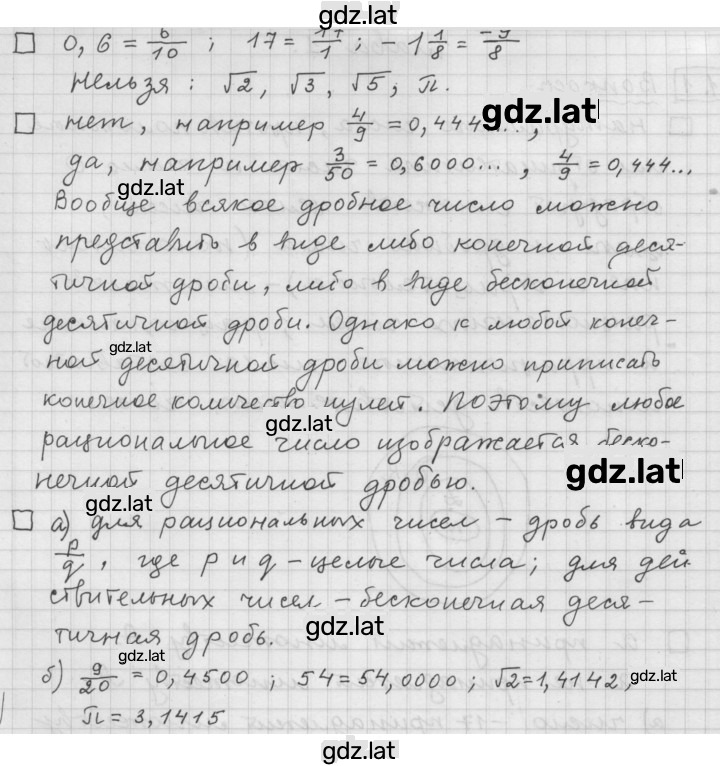 gdz.lat
□ 0,6 = 6/10 ; 17 = 17/1 ; -1 1/8 = -9/8
нельзя: √2, √3, √5, π.
□ нет, например 4/9 = 0,444..., gdz.lat
да, например 3/50 = 0,6000..., 4/9 = 0,444...
gdz.lat
Вообще всякое дробное число можно
представить в виде либо конечной деся-
тичной дроби, либо в виде бесконечной
десятичной дроби. Однако к любой конеч-
gdz.lat
ной десятичной дроби можно приписать
конечное количество нулей. Поэтому любое
gdz.lat
рациональное число изображается беско-
нечной десятичной дробью. gdz.lat
gdz.lat
□ а) для рациональных чисел – дробь вида
p/q, где p и q – целые числа; для дей
ствительных чисел – бесконечная деся-
тичная дробь. gdz.lat
gdz.lat
б) 9/20 = 0,4500 ; 54 = 54,0000 ; √2 = 1,4142, gdz.lat
π = 3,1415
gdz.lat